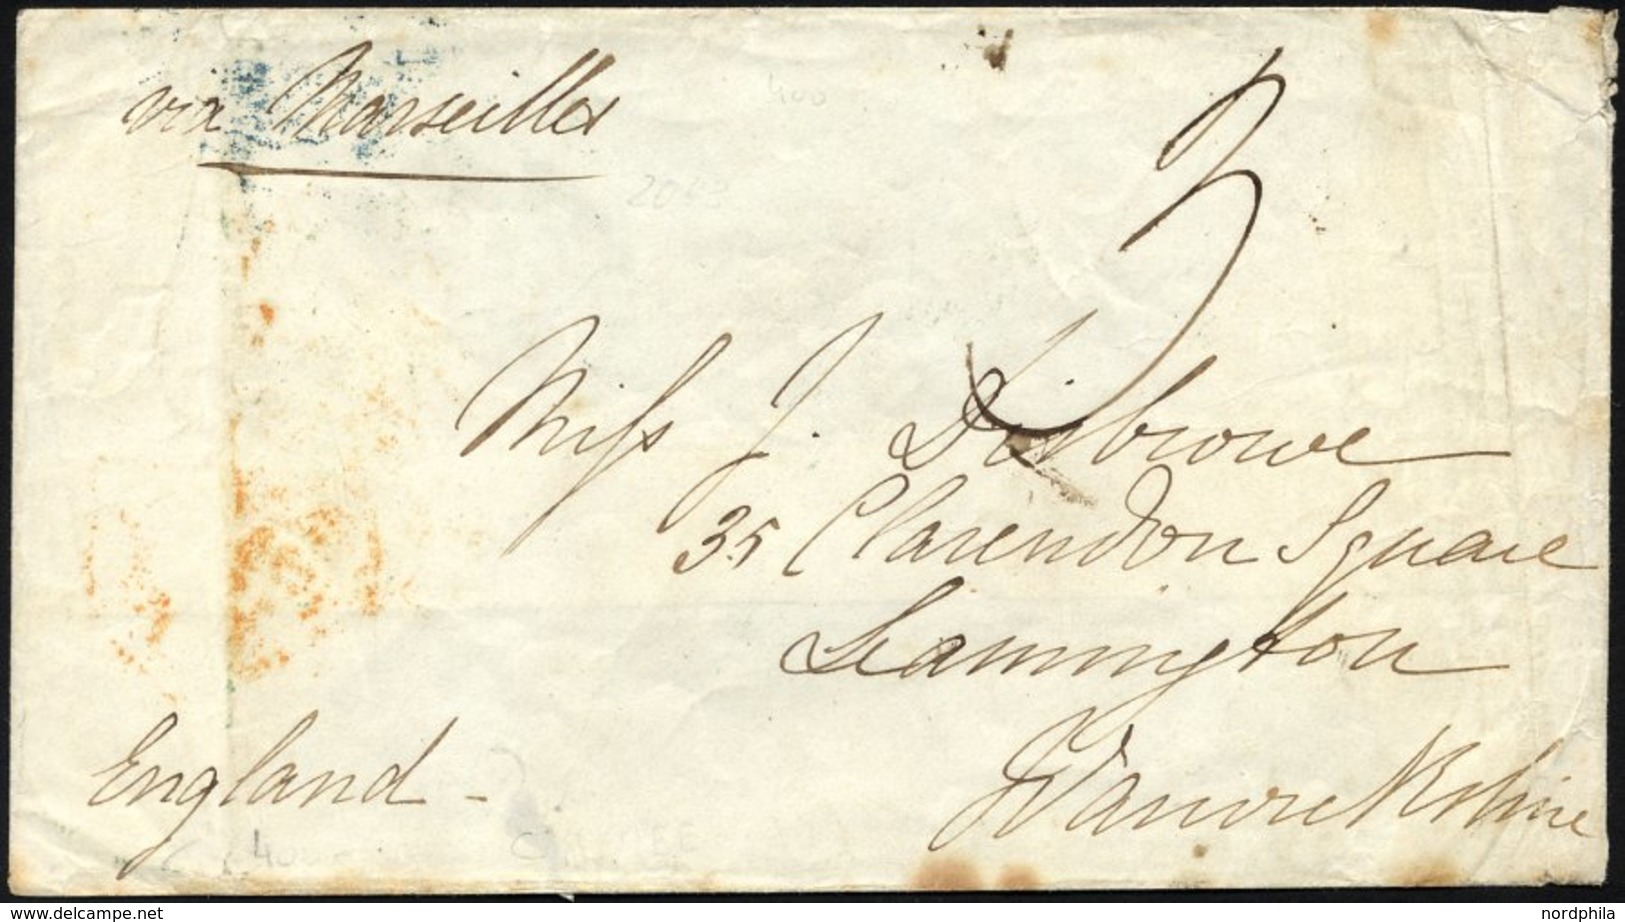 via Marseilles
400
2043
3
Miss J. Disbrowe
35 Clarendon Square
Leamington
Warwickshire
England -
400
www.delcampe.net
nordphila